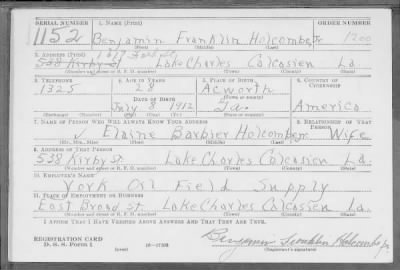 SERIAL NUMBER 1. NAME (Print) ORDER NUMBER
1152 Benjamin Franklin Holcombe, Jr 1200
(First) (Middle) (Last)
2. ADDRESS (Print) 1617
538 Kirby St Lake Charles Calcasieu La.
(Number and street or R. F. D. number) (Town) (County) (State)
3. TELEPHONE 4. AGE IN YEARS 5. PLACE OF BIRTH 6. COUNTRY OF CITIZENSHIP
1325 28 Acworth
DATE OF BIRTH (Town or county)
July 1912 Ga. America
(Exchange) (Number) (Mo.) (Day) (Yr.) (State or country)
7. NAME OF PERSON WHO WILL ALWAYS KNOW YOUR ADDRESS 8. RELATIONSHIP OF THAT PERSON
Elaine Barbier Holcombe Wife
(Mr., Mrs., Miss) (First) (Middle) (Last)
9. ADDRESS OF THAT PERSON
538 Kirby St. Lake Charles Calcasieu La.
(Number and street or R. F. D. number) (Town) (County) (State)
10. EMPLOYER'S NAME
York Oil Field Supply
11. PLACE OF EMPLOYMENT OR BUSINESS
East Broad St. Lake Charles Calcasieu La.
(Number and street or R. F. D. number) (Town) (County) (State)
I AFFIRM THAT I HAVE VERIFIED ABOVE ANSWERS AND THAT THEY ARE TRUE.
REGISTRATION CARD
D. S. S. Form 1 Benjamin Franklin Holcombe Jr.
(over) (Registrant's signature)